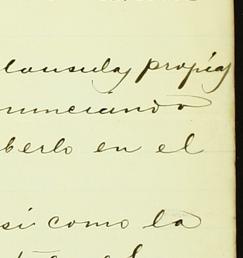 lausulas propias
nunciando
berlo en el
si como la